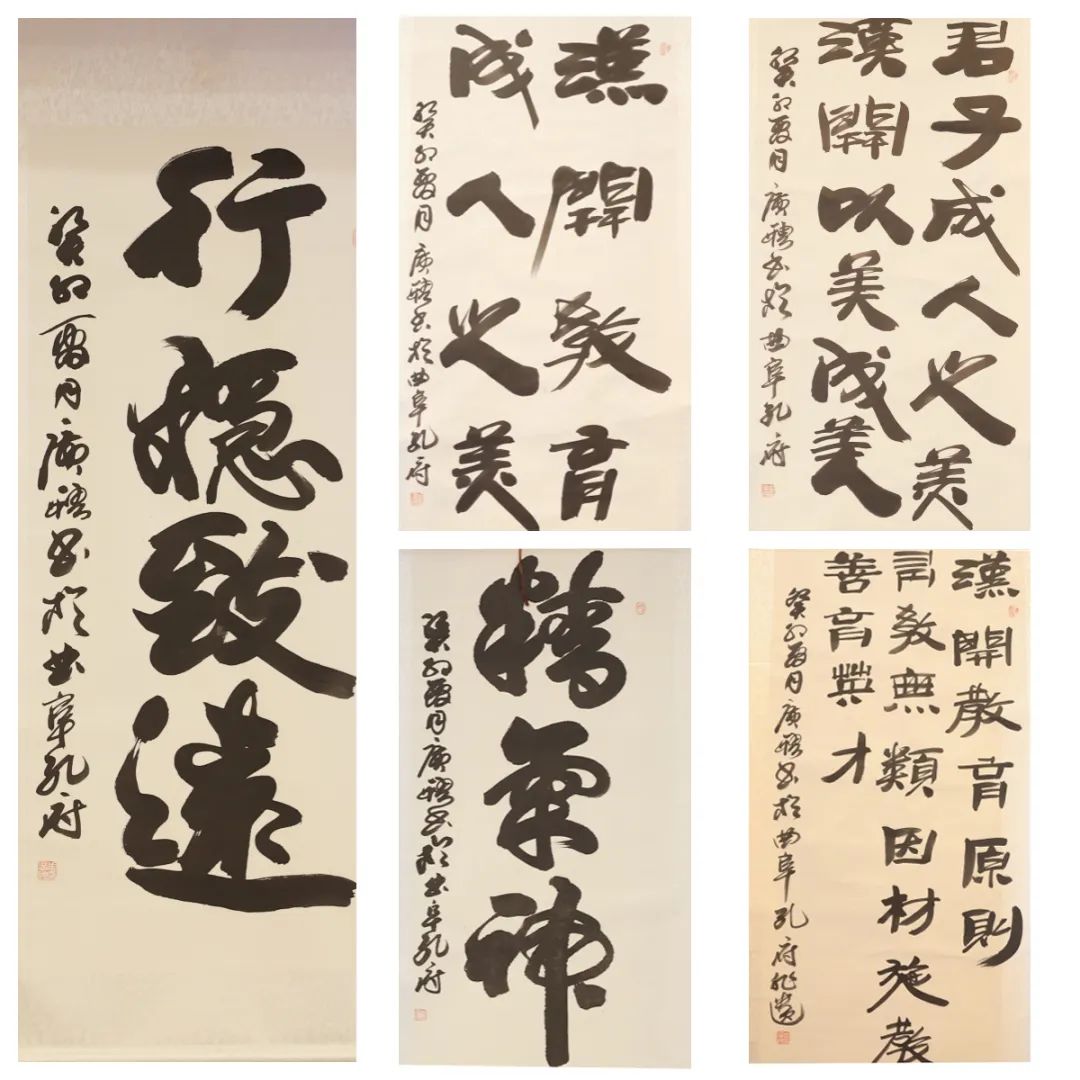 行穩致遠
癸卯酉月廣書於曲阜孔府
漢開教育
成人之美
癸卯酉月廣書於曲阜孔府
君子成人之美
漢開以美成美
癸卯酉月廣書於曲阜孔府
精氣神
癸卯酉月廣書於曲阜孔府
漢開教育原則
有教無類因材施教
善育英才
癸卯酉月廣書於曲阜孔府非遺